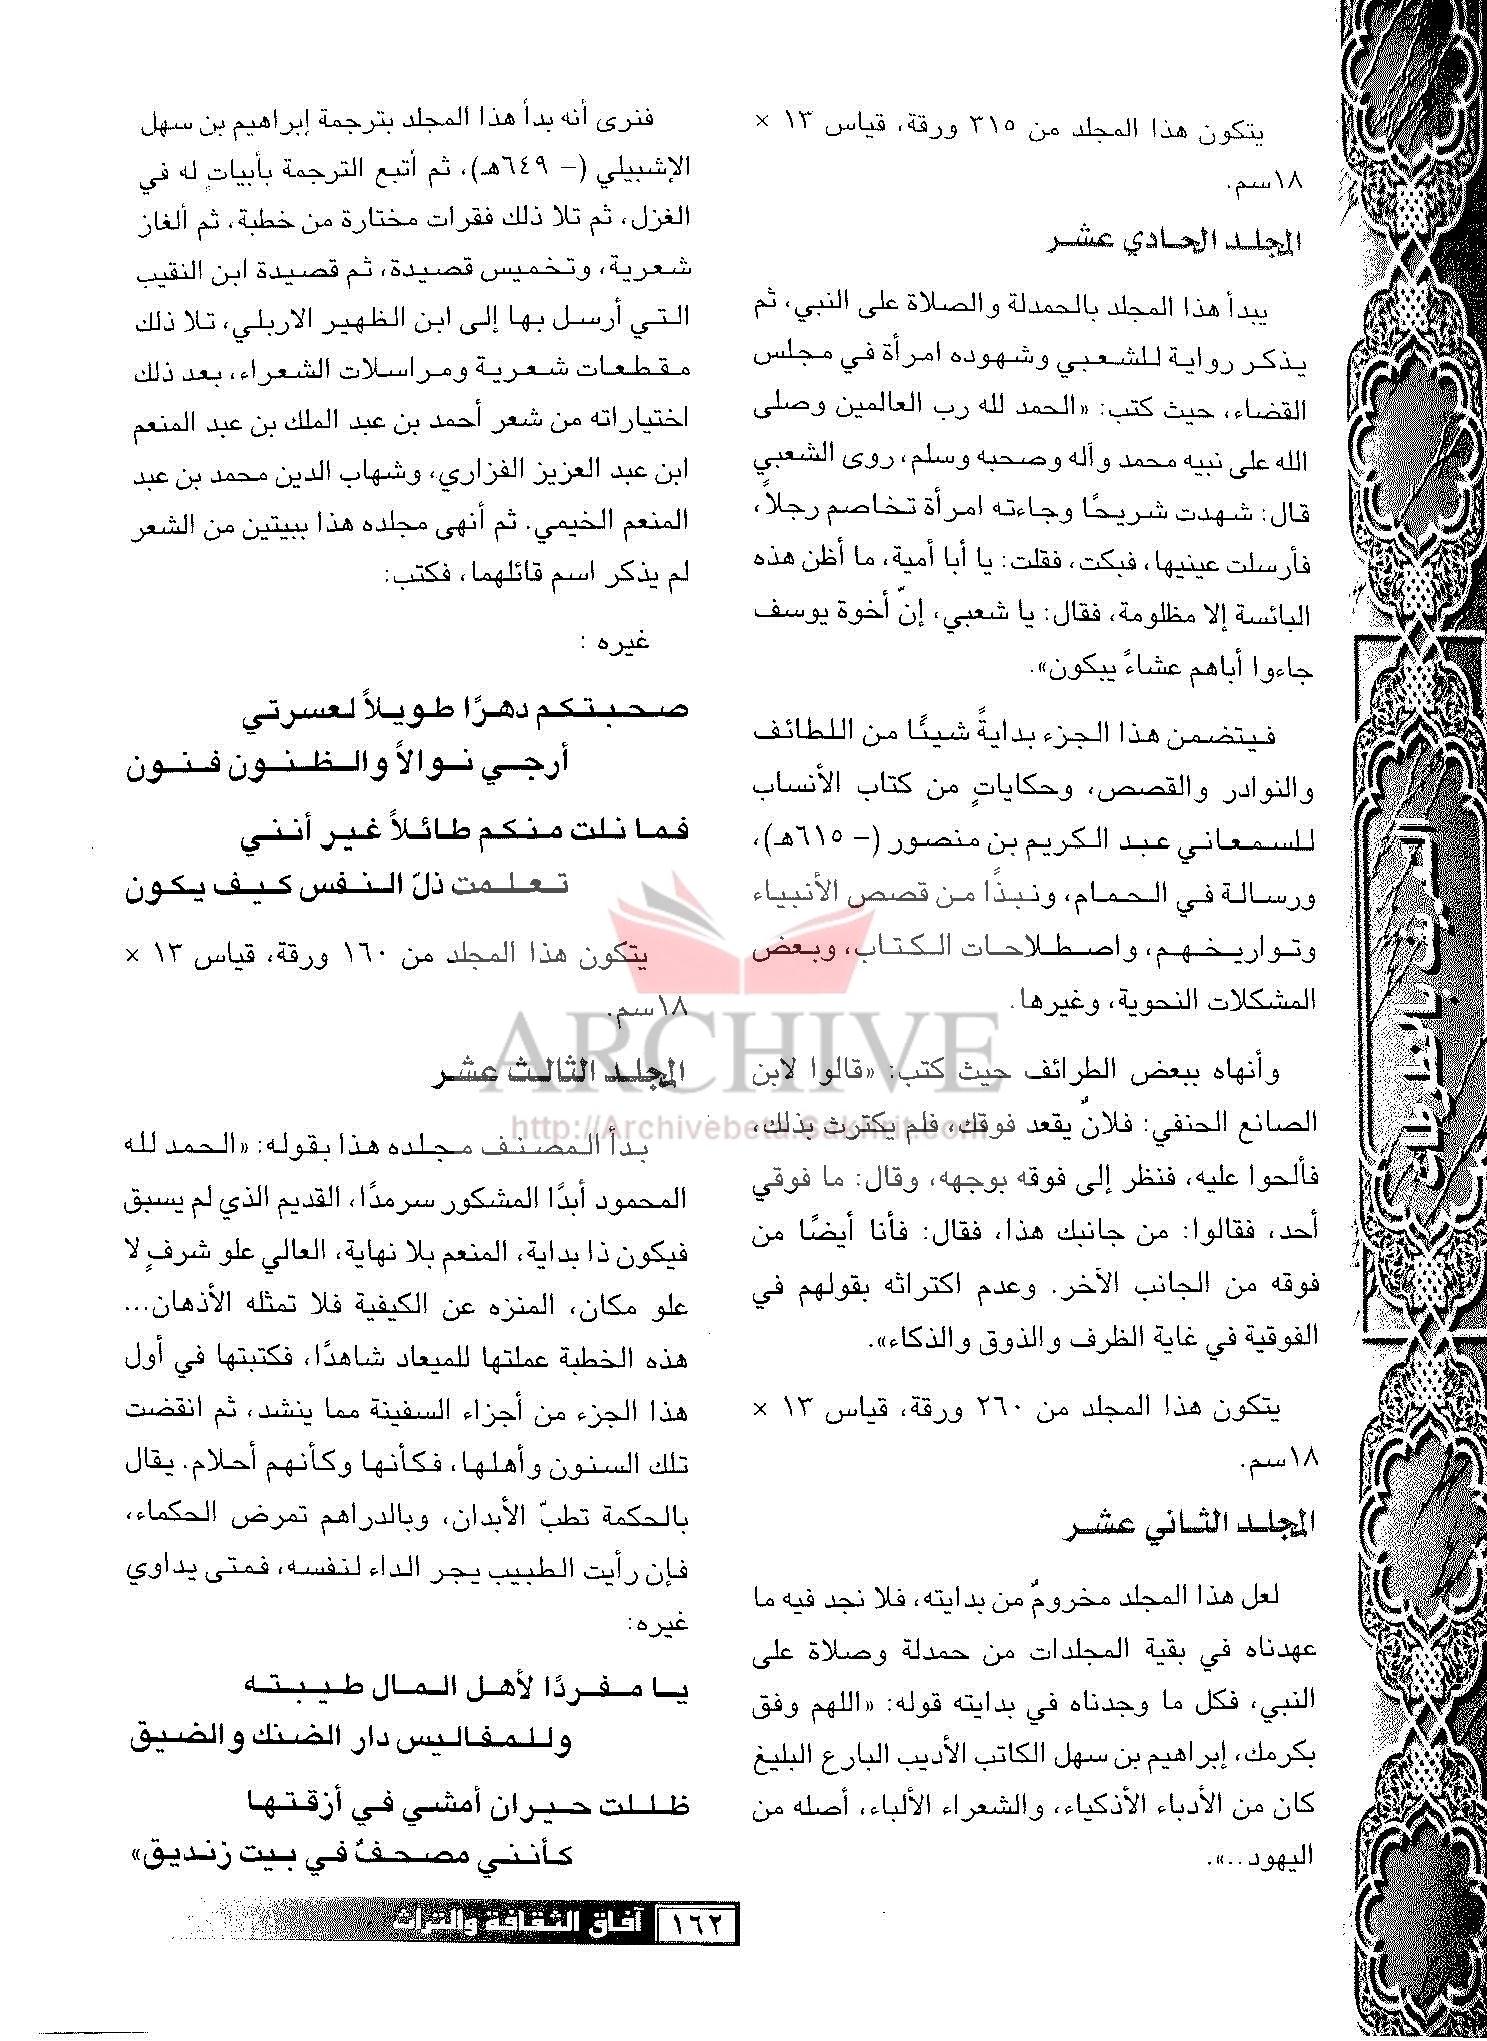 يتكون هذا المجلد من ٣١٥ ورقة، قياس ١٣ ×
١٨سم.
المجلد الحادي عشر
يبدأ هذا المجلد بالحمدلة والصلاة على النبي، ثم
يذكر رواية للشعبي وشهوده امرأة في مجلس
القضاء، حيث كتب: «الحمد لله رب العالمين وصلى
الله على نبيه محمد وآله وصحبه وسلم، روى الشعبي
قال: شهدت شريحًا وجاءته امرأة تخاصم رجلاً،
فأرسلت عينيها، فبكت، فقلت: يا أبا أمية، ما أظن هذه
البائسة إلا مظلومة، فقال: يا شعبي، إنّ أخوة يوسف
جاءوا أباهم عشاءً يبكون».
فيتضمن هذا الجزء بدايةً شيئًا من اللطائف
والنوادر والقصص، وحكاياتٍ من كتاب الأنساب
للسمعاني عبد الكريم بن منصور (– ٦١٥هـ)،
ورسالة في الحمام، ونبذًا من قصص الأنبياء
وتواريخهم، واصطلاحات الكتاب، وبعض
المشكلات النحوية، وغيرها.
وأنهاه ببعض الطرائف حيث كتب: «قالوا لابن
الصانع الحنفي: فلانٌ يقعد فوقك، فلم يكترث بذلك،
فألحوا عليه، فنظر إلى فوقه بوجهه، وقال: ما فوقي
أحد، فقالوا: من جانبك هذا، فقال: فأنا أيضًا من
فوقه من الجانب الآخر. وعدم اكتراثه بقولهم في
الفوقية في غاية الظرف والذوق والذكاء».
يتكون هذا المجلد من ٢٦٠ ورقة، قياس ١٣ ×
١٨سم.
المجلد الثاني عشر
لعل هذا المجلد مخرومٌ من بدايته، فلا نجد فيه ما
عهدناه في بقية المجلدات من حمدلة وصلاة على
النبي، فكل ما وجدناه في بدايته قوله: «اللهم وفق
بكرمك، إبراهيم بن سهل الكاتب الأديب البارع البليغ
كان من الأدباء الأذكياء، والشعراء الألباء، أصله من
اليهود..».
فنرى أنه بدأ هذا المجلد بترجمة إبراهيم بن سهل
الإشبيلي (– ٦٤٩هـ)، ثم أتبع الترجمة بأبياتٍ له في
الغزل، ثم تلا ذلك فقرات مختارة من خطبة، ثم ألغاز
شعرية، وتخميس قصيدة، ثم قصيدة ابن النقيب
التي أرسل بها إلى ابن الظهير الاربلي، تلا ذلك
مقطعات شعرية ومراسلات الشعراء، بعد ذلك
اختياراته من شعر أحمد بن عبد الملك بن عبد المنعم
ابن عبد العزيز الفزاري، وشهاب الدين محمد بن عبد
المنعم الخيمي. ثم أنهى مجلده هذا ببيتين من الشعر
لم يذكر اسم قائلهما، فكتب:
غيره :
صحبتكم دهرًا طويلاً لعسرتي
أرجي نوالاً والظنون فنون
فما نلت منكم طائلاً غير أنني
تعلمت ذلّ النفس كيف يكون
يتكون هذا المجلد من ١٦٠ ورقة، قياس ١٣ ×
١٨سم.
المجلد الثالث عشر
بدأ المصنف مجلده هذا بقوله: «الحمد لله
المحمود أبدًا المشكور سرمدًا، القديم الذي لم يسبق
فيكون ذا بداية، المنعم بلا نهاية، العالي علو شرفٍ لا
علو مكان، المنزه عن الكيفية فلا تمثله الأذهان...
هذه الخطبة عملتها للميعاد شاهدًا، فكتبتها في أول
هذا الجزء من أجزاء السفينة مما ينشد، ثم انقضت
تلك السنون وأهلها، فكأنها وكأنهم أحلام. يقال
بالحكمة تطبّ الأبدان، وبالدراهم تمرض الحكماء،
فإن رأيت الطبيب يجر الداء لنفسه، فمتى يداوي
غيره:
يا مفردًا لأهل المال طيبته
وللمفاليس دار الضنك والضيق
ظللت حيران أمشي في أزقتها
كأنني مصحفٌ في بيت زنديق»
ARCHIVE
http://Archivebeta.Sakhrit.com
١٦٢ آفاق الثقافة والتراث